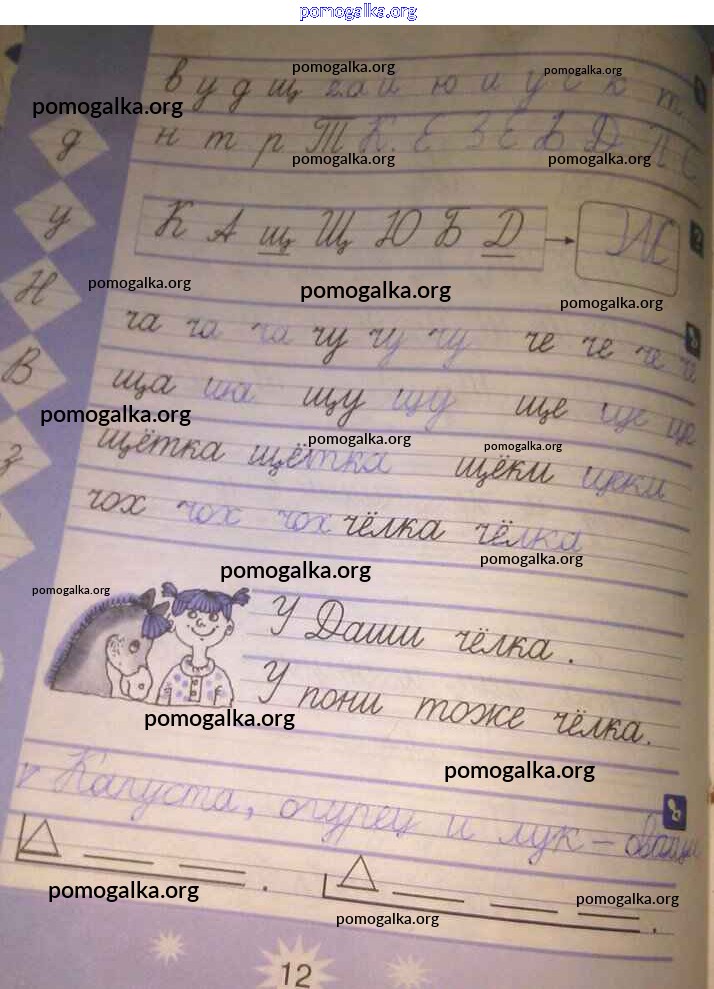 pomogalka.org
в у д щ г а й ю и у с к т
pomogalka.org
pomogalka.org
pomogalka.org
н т р Т К Е З Е Б D Л С
pomogalka.org
pomogalka.org
д
у
К А щ Щ Ю Б D
Ж
pomogalka.org
pomogalka.org
pomogalka.org
Н
ча ча ча чу чу чу че че че че
В
ща ща щу щу ще ще ще
pomogalka.org
pomogalka.org
pomogalka.org
щётка щётка щёки щеки
з
чох чох чох чёлка чёлка
pomogalka.org
pomogalka.org
pomogalka.org
У Даши чёлка.
У пони тоже чёлка.
pomogalka.org
pomogalka.org
Капуста, огурец и лук – овощи
pomogalka.org
pomogalka.org
pomogalka.org
12